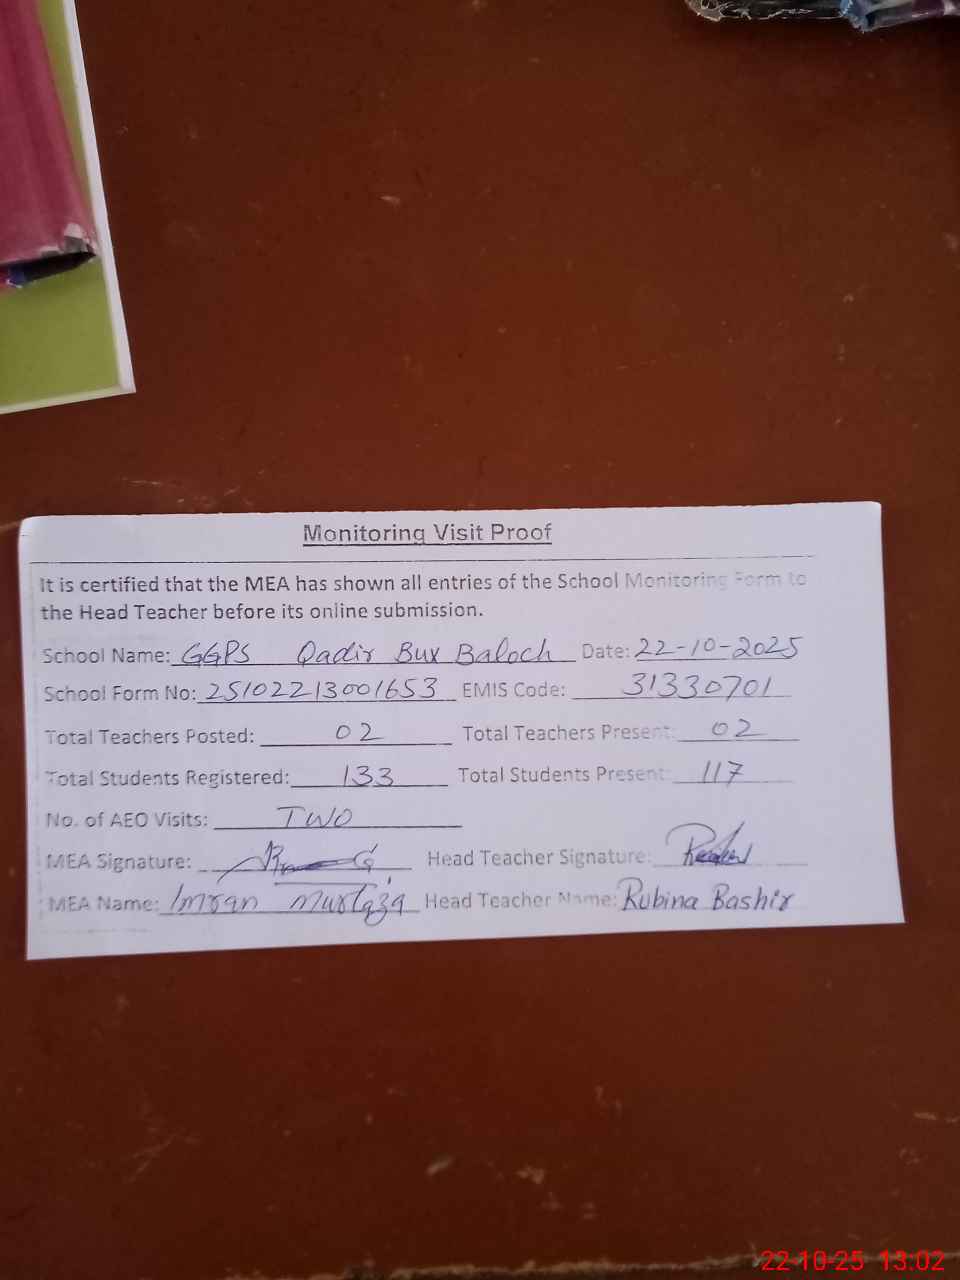 Monitoring Visit Proof
It is certified that the MEA has shown all entries of the School Monitoring Form to
the Head Teacher before its online submission.
School Name: GGPS Qadir Bux Baloch Date: 22-10-2025
School Form No: 25102213001653 EMIS Code: 31330701
Total Teachers Posted: 02 Total Teachers Present: 02
Total Students Registered: 133 Total Students Present: 117
No. of AEO Visits: TWO
MEA Signature: Head Teacher Signature:
MEA Name: Imran Murtaza Head Teacher Name: Rubina Bashir
22-10-25 13:02